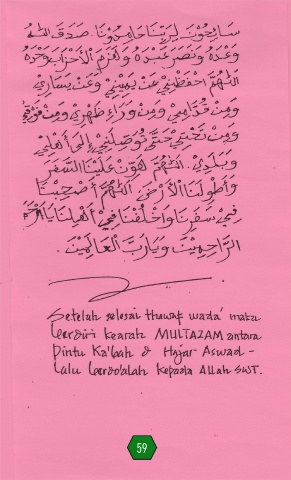 سَائِحُوْنَ لِرَبِّنَا حَامِدُوْنَ. صَدَقَ اللهُ
وَعْدَهُ وَنَصَرَ عَبْدَهُ وَهَزَمَ الْأَحْزَابَ وَحْدَهُ
اَللّٰهُمَّ احْفَظْنِيْ عَنْ يَمِيْنِيْ وَعَنْ يَسَارِيْ
وَمِنْ قُدَّامِيْ وَمِنْ وَرَاءِ ظَهْرِيْ وَمِنْ فَوْقِيْ
وَمِنْ تَحْتِيْ حَتّٰى تُوَصِّلَنِيْ إِلٰى أَهْلِيْ
وَبَلَدِيْ. اَللّٰهُمَّ هَوِّنْ عَلَيْنَا السَّفَرَ
وَاطْوِلَنَا الْأَرْضَ. اَللّٰهُمَّ أَصْحِبْنَا
فِيْ سَفَرِنَا وَاخْلُفْنَا فِيْ أَهْلِنَا يَا أَرْحَمَ
الرَّاحِمِيْنَ وَيَا رَبَّ الْعَالَمِيْنَ.
Setelah selesai thawaf wada' maka
berdiri kearah MULTAZAM antara
Pintu Ka'bah & Hajar Aswad -
lalu berdo'alah kepada Allah SWT.
59